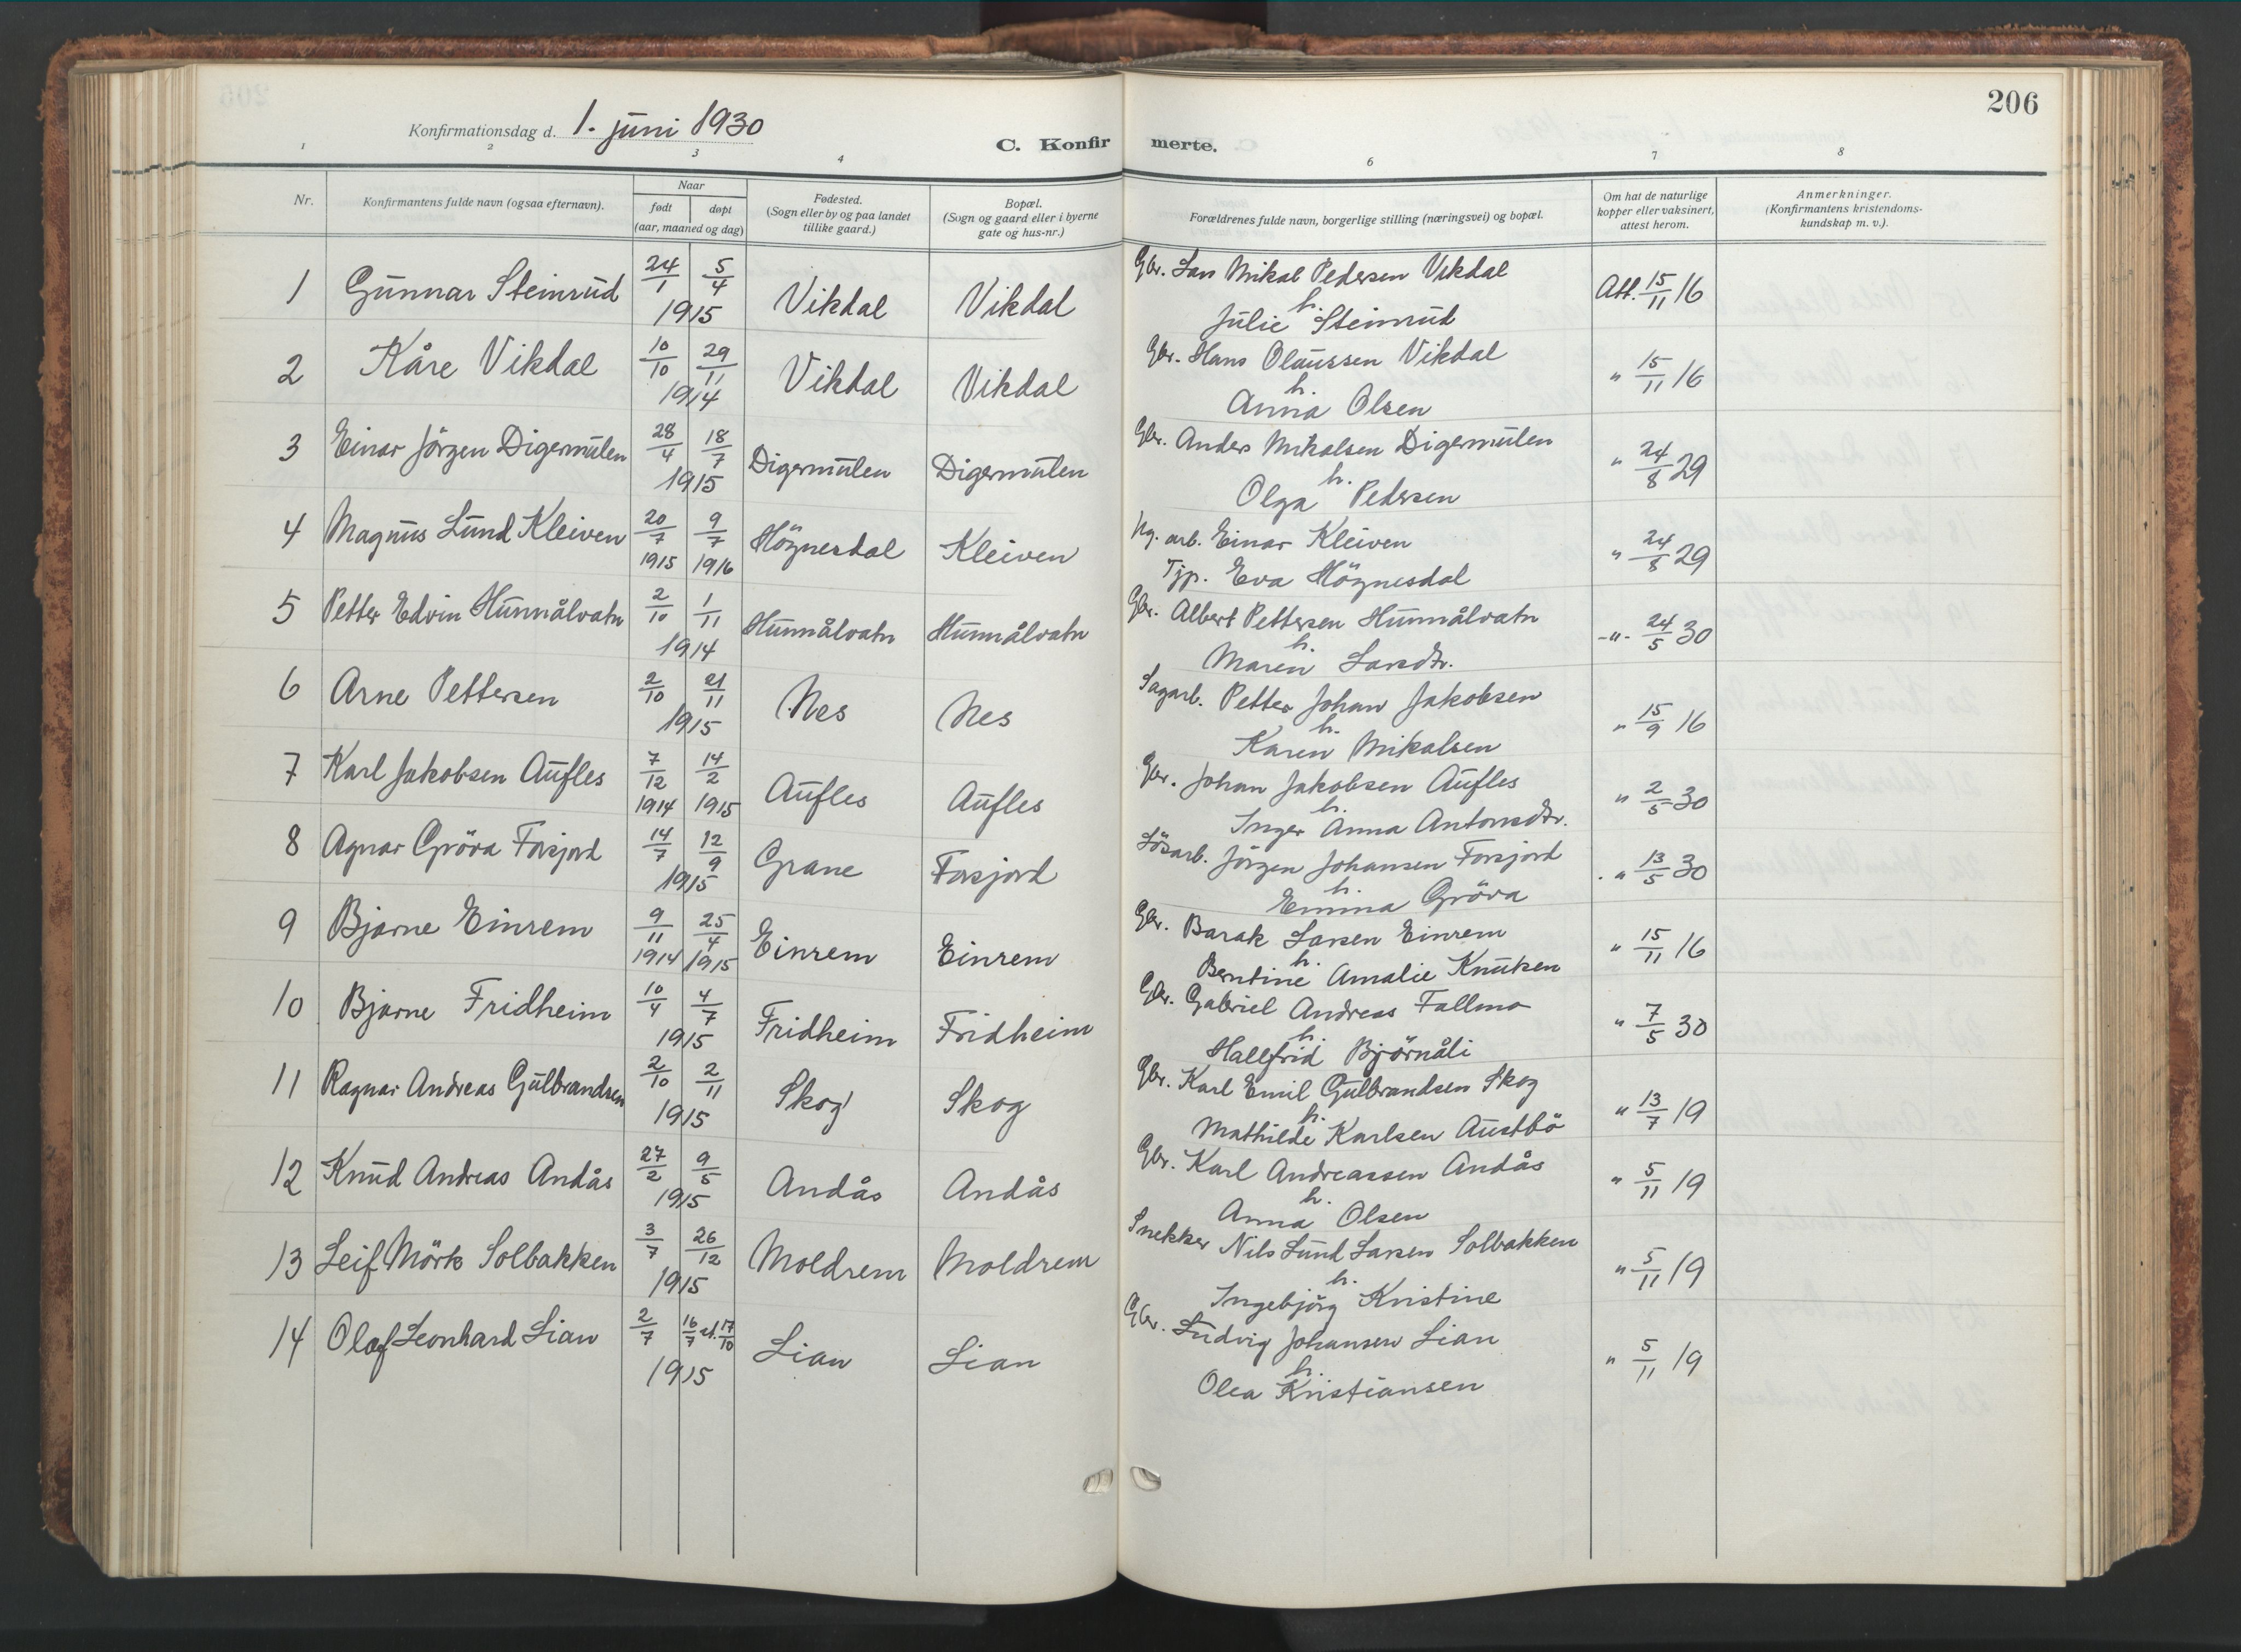 206
Konfirmationsdag d. 1. juni 1930
C. Konfirmerte.
1 2 3 4 6 7 8
Nr.
Konfirmantens fulde navn (ogsaa efternavn).
Naar
født døpt
(aar, maaned og dag)
Fødested.
(Sogn eller by og paa landet
tillike gaard.)
Bopæl.
(Sogn og gaard eller i byerne
gate og hus-nr.)
Forældrenes fulde navn, borgerlige stilling (næringsvei) og bopæl.
Om hat de naturlige
kopper eller vaksinert,
attest herom.
Anmerkninger.
(Konfirmantens kristendoms-
kundskap m. v.).
1 Gunnar Steinrud 24/1 5/4 1915 Vikdal Vikdal Gbr. Lars Mikal Pedersen Vikdal
h.
Julie Steinrud Att. 15/11 16
2 Kåre Vikdal 10/10 29/11 1914 Vikdal Vikdal Gbr. Hans Olaussen Vikdal
h.
Anna Olsen " 15/11 16
3 Einar Jörgen Digermulen 28/4 18/7 1915 Digermulen Digermulen Gbr. Anders Mikalsen Digermulen
h.
Olga Pedersen " 24/8 29
4 Magnus Lund Kleiven 20/7 1915 9/7 1916 Högnesdal Kleiven Ug. arb. Einar Kleiven
Tjp. Eva Högnesdal " 24/8 29
5 Petter Edvin Hunnålvatn 2/10 1/11 1914 Hunnålvatn Hunnålvatn Gbr. Albert Pettersen Hunnålvatn
h.
Maren Larsdtr. -"- 24/5 30
6 Arne Pettersen 2/10 21/11 1915 Nes Nes Sagarb. Petter Johan Jakobsen
h.
Karen Mikalsen " 15/9 16
7 Karl Jakobsen Aufles 7/12 1914 14/2 1915 Aufles Aufles Gbr. Johan Jakobsen Aufles
h.
Inger Anna Antonsdtr. " 2/5 30
8 Agnar Gröva Forsjord 14/7 12/9 1915 Grane Forsjord Lösarb. Jörgen Johansen Forsjord
h.
Emma Gröva " 13/5 30
9 Bjarne Einrem 9/11 1914 25/4 1915 Einrem Einrem Gbr. Barak Larsen Einrem
h.
Berntine Amalie Knutsen " 15/11 16
10 Bjarne Fridheim 10/4 4/7 1915 Fridheim Fridheim Gbr. Gabriel Andreas Fallmo
h.
Hallfrid Björnåli " 7/5 30
11 Ragnar Andreas Gulbrandsen 2/10 2/11 1915 Skog Skog Gbr. Karl Emil Gulbrandsen Skog
h.
Mathilde Karlsen Austbö " 13/7 19
12 Knud Andreas Andås 27/2 9/5 1915 Andås Andås Gbr. Karl Andreassen Andås
h.
Anna Olsen " 5/11 19
13 Leif Mörk Solbakken 3/7 26/12 1915 Moldrem Moldrem Snekker Nils Lund Larsen Solbakken
h.
Ingebjörg Kristine " 5/11 19
14 Olaf Leonhard Lian 2/7 16/7 st. 17/10 1915 Lian Lian Gbr. Ludvig Johansen Lian
h.
Olea Kristiansen " 5/11 19